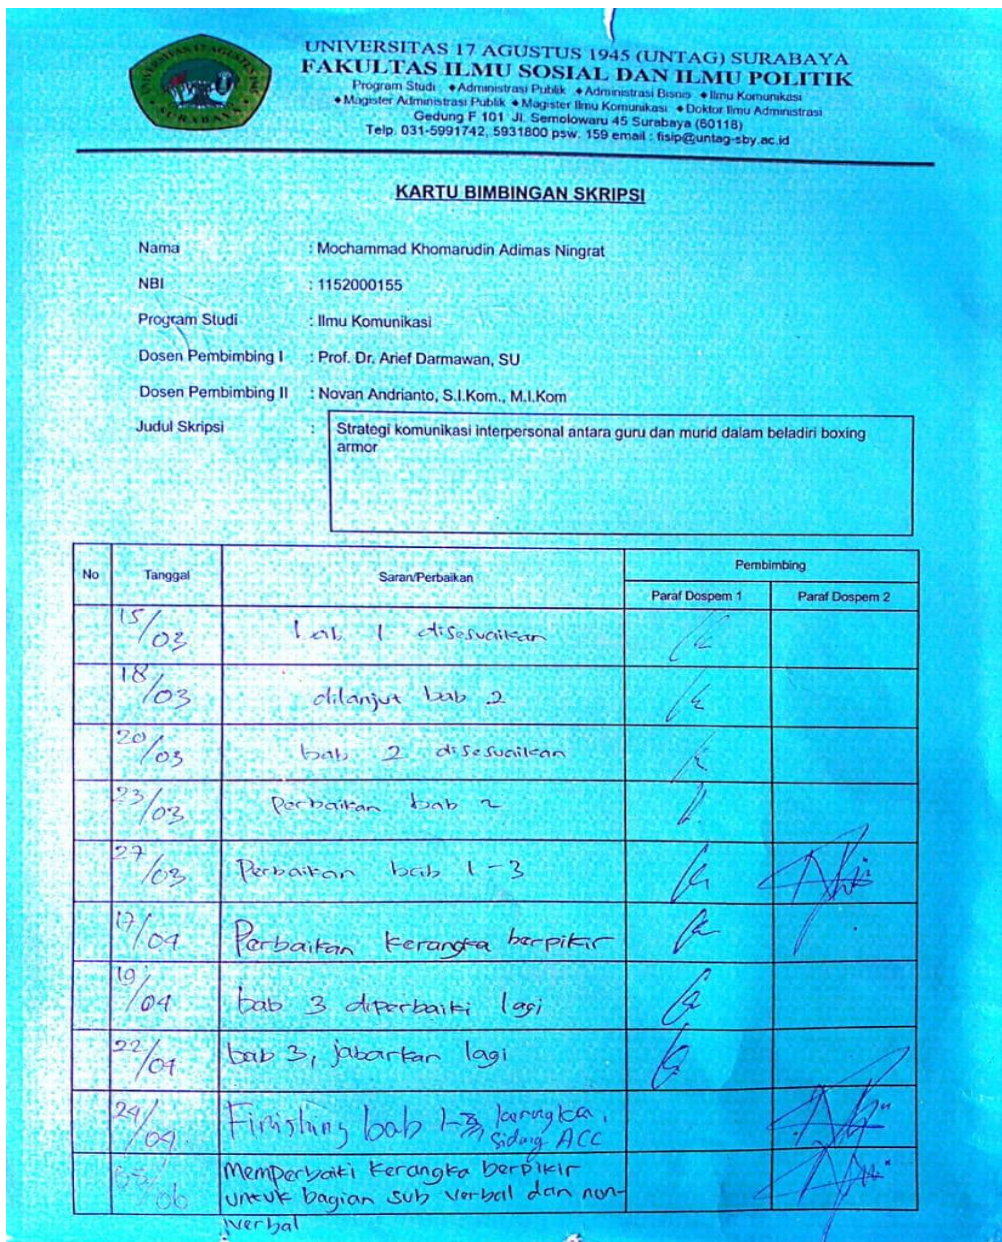 UNIVERSITAS 17 AGUSTUS 1945 (UNTAG) SURABAYA
FAKULTAS ILMU SOSIAL DAN ILMU POLITIK
Program Studi ◆Administrasi Publik ◆Administrasi Bisnis ◆Ilmu Komunikasi
◆Magister Administrasi Publik ◆Magister Ilmu Komunikasi ◆Doktor Ilmu Administrasi
Gedung F 101 Jl. Semolowaru 45 Surabaya (60118)
Telp. 031-5991742, 5931800 psw. 159 email : fisip@untag-sby.ac.id
SURABAYA
KARTU BIMBINGAN SKRIPSI
Nama : Mochammad Khomarudin Adimas Ningrat
NBI : 1152000155
Program Studi : Ilmu Komunikasi
Dosen Pembimbing I : Prof. Dr. Arief Darmawan, SU
Dosen Pembimbing II : Novan Andrianto, S.I.Kom., M.I.Kom
Judul Skripsi : Strategi komunikasi interpersonal antara guru dan murid dalam beladiri boxing
armor
No Tanggal Saran/Perbaikan Pembimbing
Paraf Dospem 1 Paraf Dospem 2
15/03 bab 1 disesuaikan
18/03 dilanjut bab 2
20/03 bab 2 disesuaikan
23/03 Perbaikan bab 2
27/03 Perbaikan bab 1-3
17/04 Perbaikan kerangka berpikir
19/04 bab 3 diperbaiki lagi
22/04 bab 3, jabarkan lagi
24/04. Finishing bab 1-3, kerangka,
sidang ACC
/06 Memperbaiki kerangka berpikir
untuk bagian sub verbal dan non-
verbal